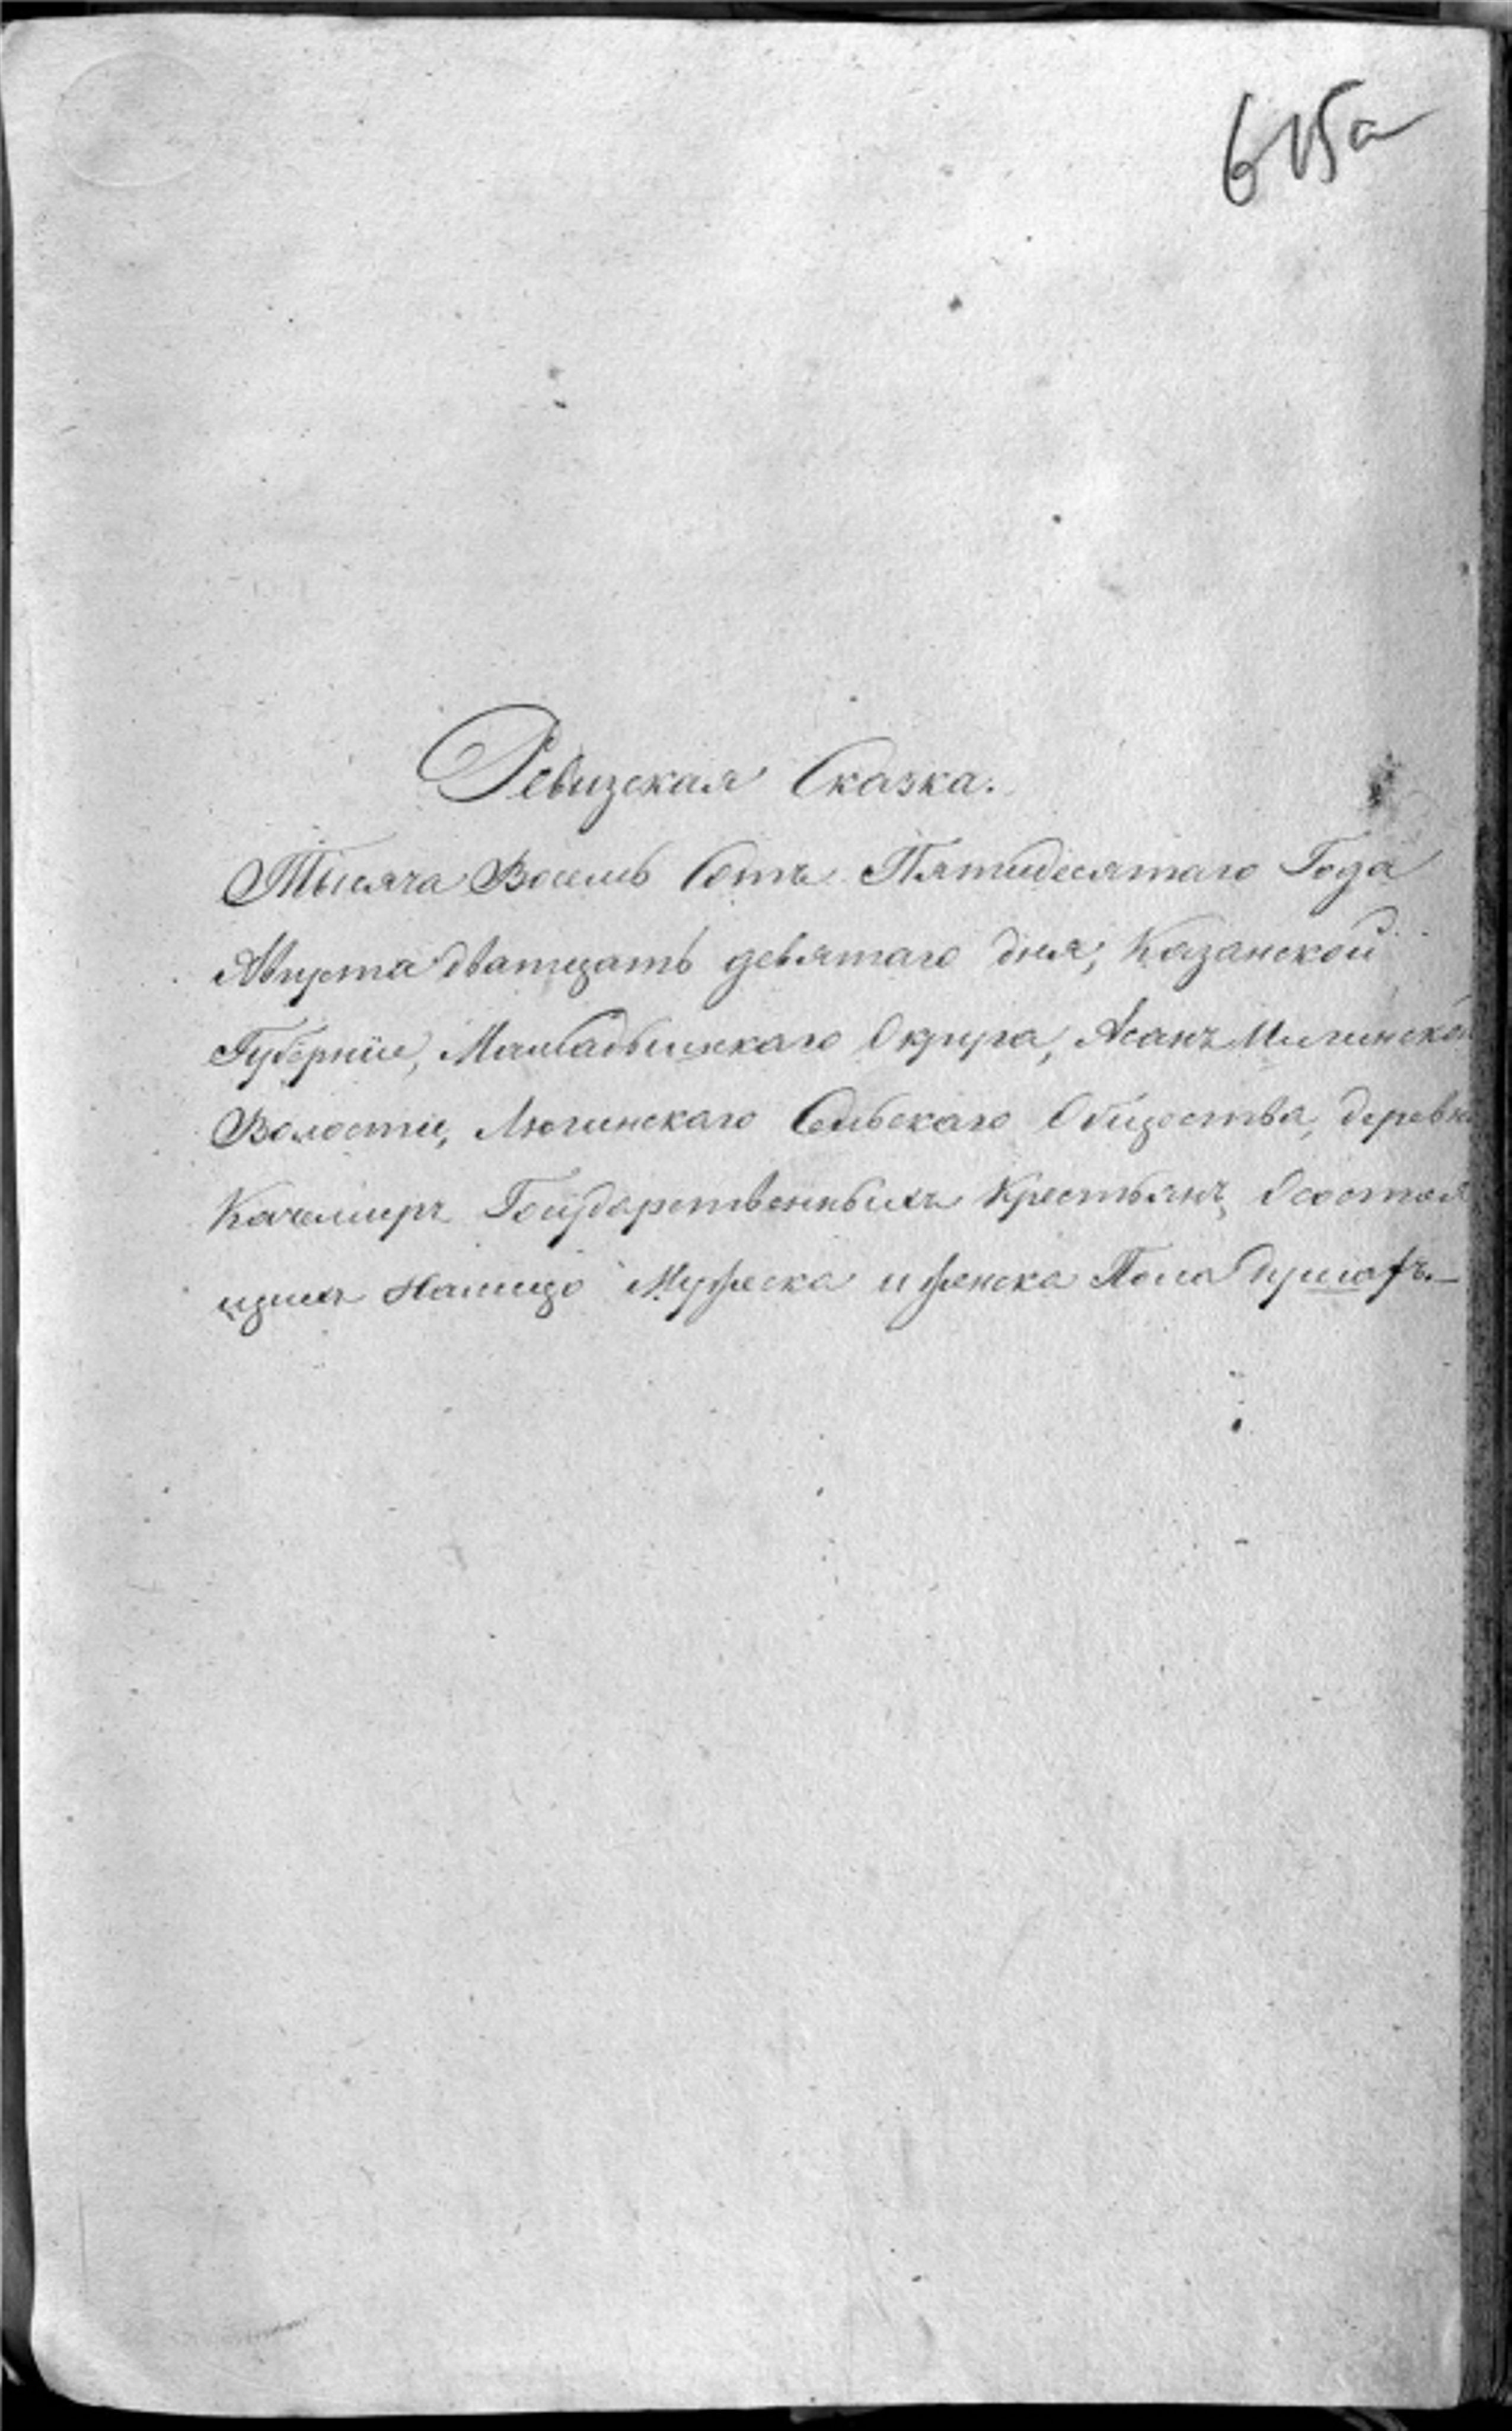 615а
Ревизская Сказка.
Тысяча Восемь Сотъ Пятидесятаго Года
Августа дватцать девятаго дня, Казанской
Губерніи, Мамадышскаго Округа, Асанъ Илгинской
Волости, Люгинскаго Сельскаго Общества, деревни
Качемиръ Государственныхъ Крестьянъ, О состоя
щихъ Налицо Мужеска и женска Пола душахъ.